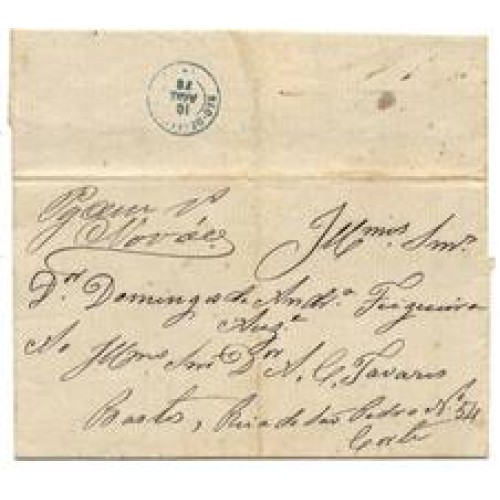 10
78
Illmos Snr.
Dor Domingos de Andra Figueira
Augª
Ao Illmo Snr Dor A. C. Tavares
Bastos, Rua de São Pedro Nº 54
Corte